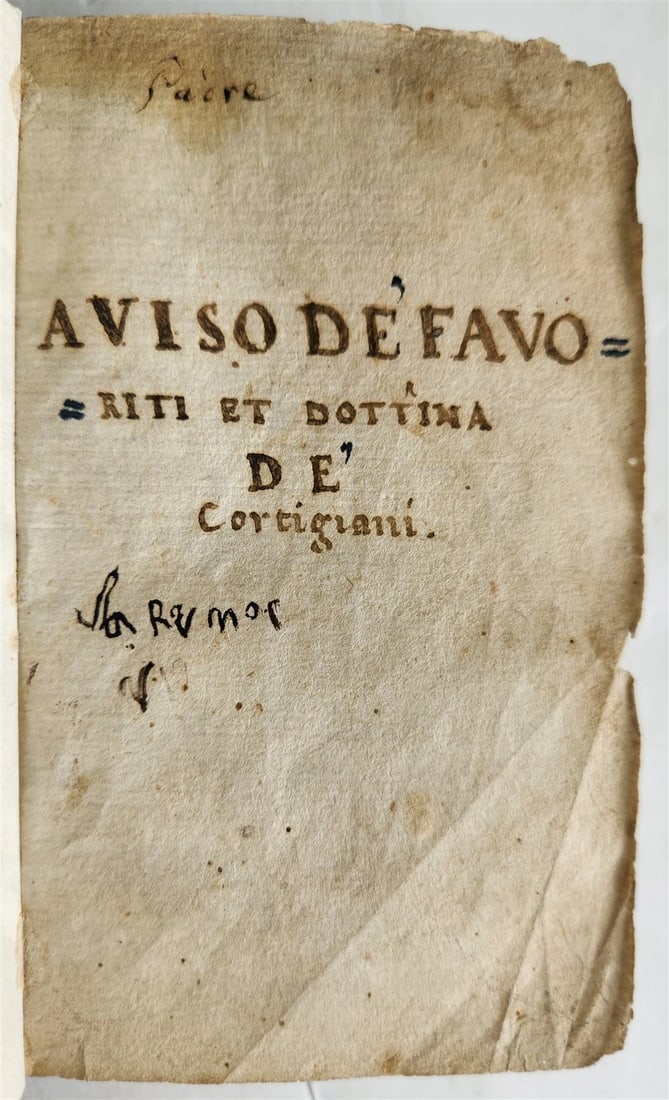 Padre
AVISO DE' FAVO=
=RITI ET DOTTRINA
DE'
Cortigiani.